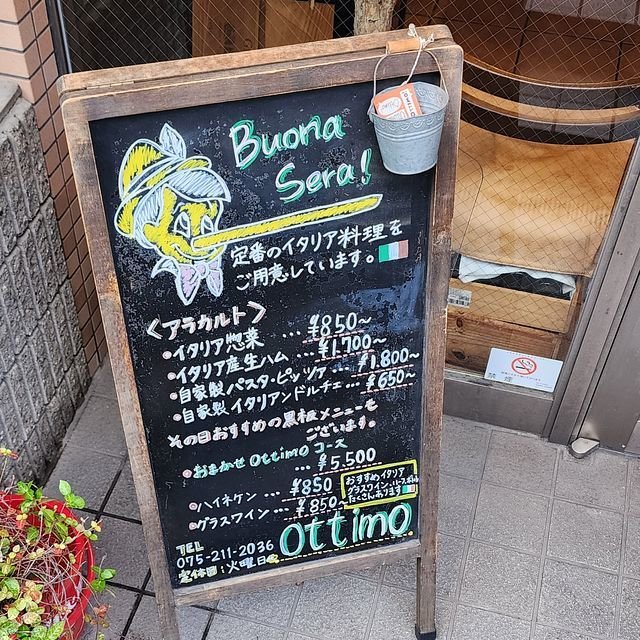 Buona
Sera!
定番のイタリア料理を
ご用意しています。
<アラカルト>
・イタリア惣菜 … ¥850~
・イタリア産生ハム … ¥1,700~
・自家製パスタ・ピッツァ … ¥1,800~
・自家製イタリアンドルチェ … ¥650~
その日おすすめの黒板メニューも
ございます。
・おまかせ Ottimo コース
… ¥5,500
・ハイネケン … ¥850
・グラスワイン … ¥850~
おすすめイタリア
グラスワイン
たくさんあります
TEL
075-211-2036
定休日:火曜日
Ottimo
禁煙